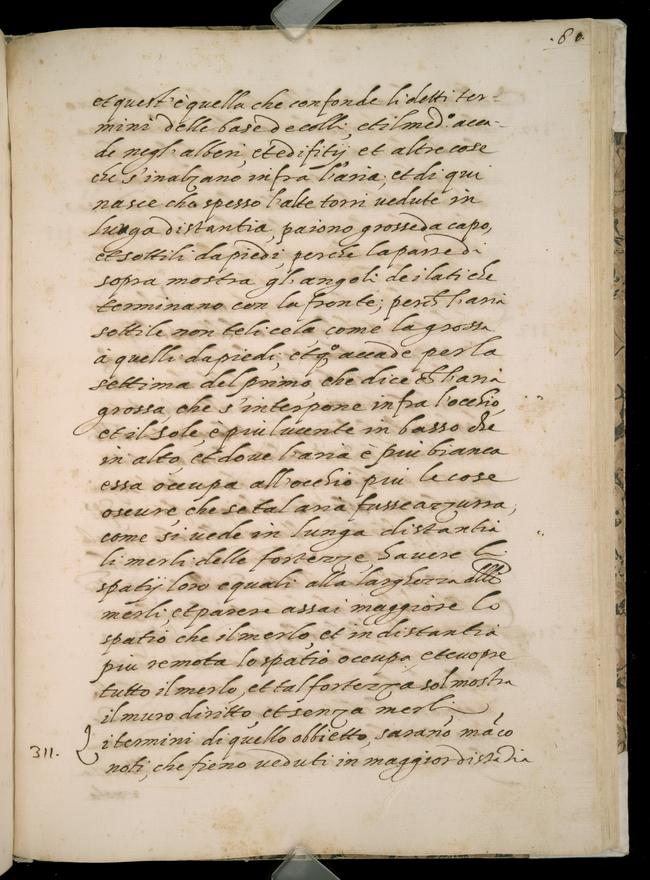 .80.
et quest'è quella che confonde li detti ter-
mini delle base de colli, et il med.º acca-
de negl'alberi, et edifitij et altre cose
che s'inalzano infra l'aria, et di qui
nasce che spesso l'alte torri vedute in
lunga distantia, paiono grosse da capo,
et sottili da piedi, perche la parte di
sopra mostra gl'angoli de i lati che
terminano con la fronte; perch l'aria
sottile non teli cela come la grossa
à quelli da piedi, et qº accade per la
settima del primo, che dice ch l'aria
grossa che s'interpone infra l'occhio,
et il sole, è piu lucente in basso che
in alto, et dove l'aria è piu bianca
essa occupa all'occhio piu le cose
oscure che se tal aria fusse azzurra,
come si vede in lunga distantia
li merli delle fortezze havere li
spatij loro equali alla larghezza delli
merli, et parere assai maggiore lo
spatio che il merlo, et in distantia
piu remota lo spatio occupa et cuopre
tutto il merlo, et tal fortezza sol mostra
il muro diritto et senza merli
311. i termini di quello obbietto, sarano mãco
noti, che fieno veduti in maggior distãtia